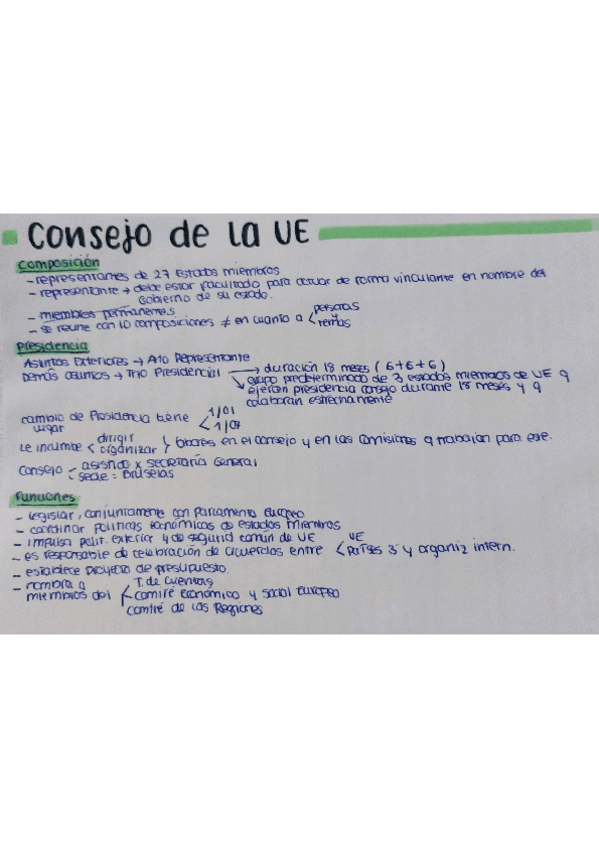 Consejo de la UE
Composición
- representantes de 27 Estados miembros
- representante → debe estar facultado para actuar de forma vinculante en nombre del
Gobierno de su estado.
- miembros permanentes
- se reune con 10 composiciones ≠ en cuanto a < personas
temas
Presidencia
Asuntos Exteriores → Alto Representante
Demás asuntos → Trio Presidencial → duración 18 meses (6+6+6)
↘ grupo predeterminado de 3 estados miembros de UE q
ejercen presidencia consejo durante 18 meses y q
colaboran estrechamente
cambio de Presidencia tiene lugar < 1/01
1/07
Le incumbe < dirigir
organizar } labores en el consejo y en las comisiones q trabajan para ese.
Consejo < asistido x secretaría General
sede: Bruselas
Funciones
- legislar, conjuntamente con parlamento europeo
- coordinar políticas económicas de estados miembros
- impulsa polit. exterior y de segurid común de UE
- es responsable de celebración de acuerdos entre < UE
países 3ᵒˢ y organiz intern.
- establece proyecto de presupuesto.
- nombra a miembros del < T. de cuentas
comité económico y social europeo
comité de las Regiones